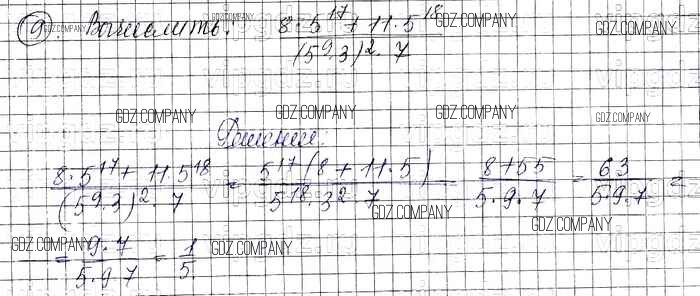 9. Вычислить: (8·5^17 + 11·5^18) / ((5^9·3)^2·7)
GDZ.COMPANY GDZ.COMPANY GDZ.COMPANY GDZ.COMPANY
GDZ.COMPANY GDZ.COMPANY GDZ.COMPANY GDZ.COMPANY
Решение:
(8·5^17 + 11·5^18) / ((5^9·3)^2·7) = (5^17(8+11·5)) / (5^18·3^2·7) = (8+55) / (5·9·7) = 63 / (5·9·7) =
GDZ.COMPANY GDZ.COMPANY
= (9·7) / (5·9·7) = 1/5
GDZ.COMPANY GDZ.COMPANY